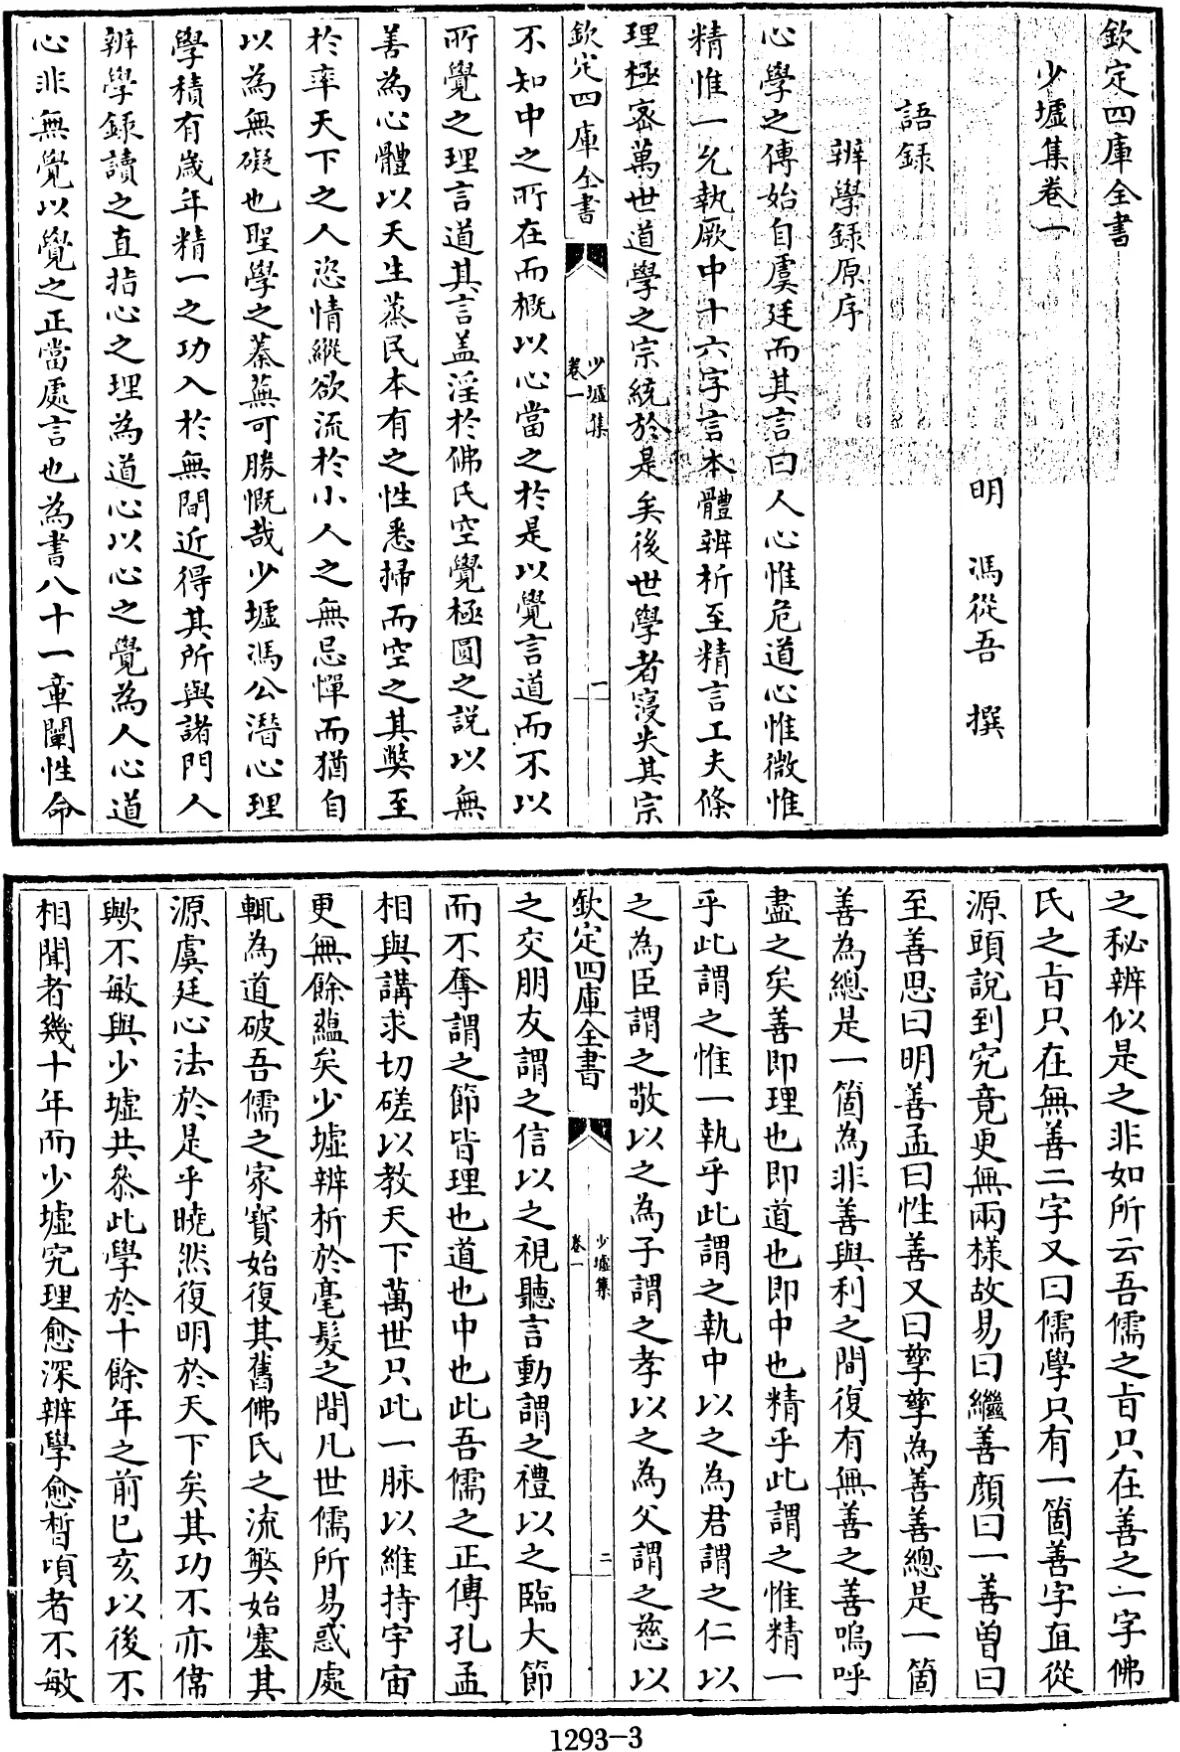 欽定四庫全書
少墟集卷一
明 馮從吾 撰
語錄
辨學錄原序
心學之傳始自虞廷而其言曰人心惟危道心惟微惟
精惟一允執厥中十六字言本體辨析至精言工夫條
理極宻萬世道學之宗統於是矣後世學者寖失其宗
欽定四庫全書
少墟集
卷一
一
不知中之所在而概以心當之於是以覺言道而不以
所覺之理言道其言盖淫於佛氏空覺極圓之説以無
善為心體以天生蒸民本有之性悉掃而空之其獘至
於率天下之人恣情縱欲流於小人之無忌憚而猶自
以為無礙也聖學之蓁蕪可勝慨哉少墟馮公潛心理
學積有歲年精一之功入於無間近得其所與諸門人
辨學錄讀之直指心之理為道心以心之覺為人心道
心非無覺以覺之正當處言也為書八十一章闡性命
之秘辨似是之非如所云吾儒之㫖只在善之一字佛
氏之㫖只在無善二字又曰儒學只有一箇善字直從
源頭說到究竟更無兩樣故易曰繼善顏曰一善曾曰
至善思曰明善孟曰性善又曰孳孳為善善總是一箇
善為總是一箇為非善與利之間復有無善之善嗚呼
盡之矣善即理也即道也即中也精乎此謂之惟精一
乎此謂之惟一執乎此謂之執中以之為君謂之仁以
之為臣謂之敬以之為子謂之孝以之為父謂之慈以
欽定四庫全書
少墟集
卷一
二
之交朋友謂之信以之視聽言動謂之禮以之臨大節
而不奪謂之節皆理也道也中也此吾儒之正傳孔孟
相與講求切磋以教天下萬世只此一脈以維持宇宙
更無餘蘊矣少墟辨析於毫髮之間凡世儒所易惑處
輒為道破吾儒之家寳始復其舊佛氏之流獘始塞其
源虞廷心法於是乎曉然復明於天下矣其功不亦偉
歟不敏與少墟共叅此學於十餘年之前已亥以後不
相聞者幾十年而少墟究理愈深辨學愈晳頃者不敏
1293-3